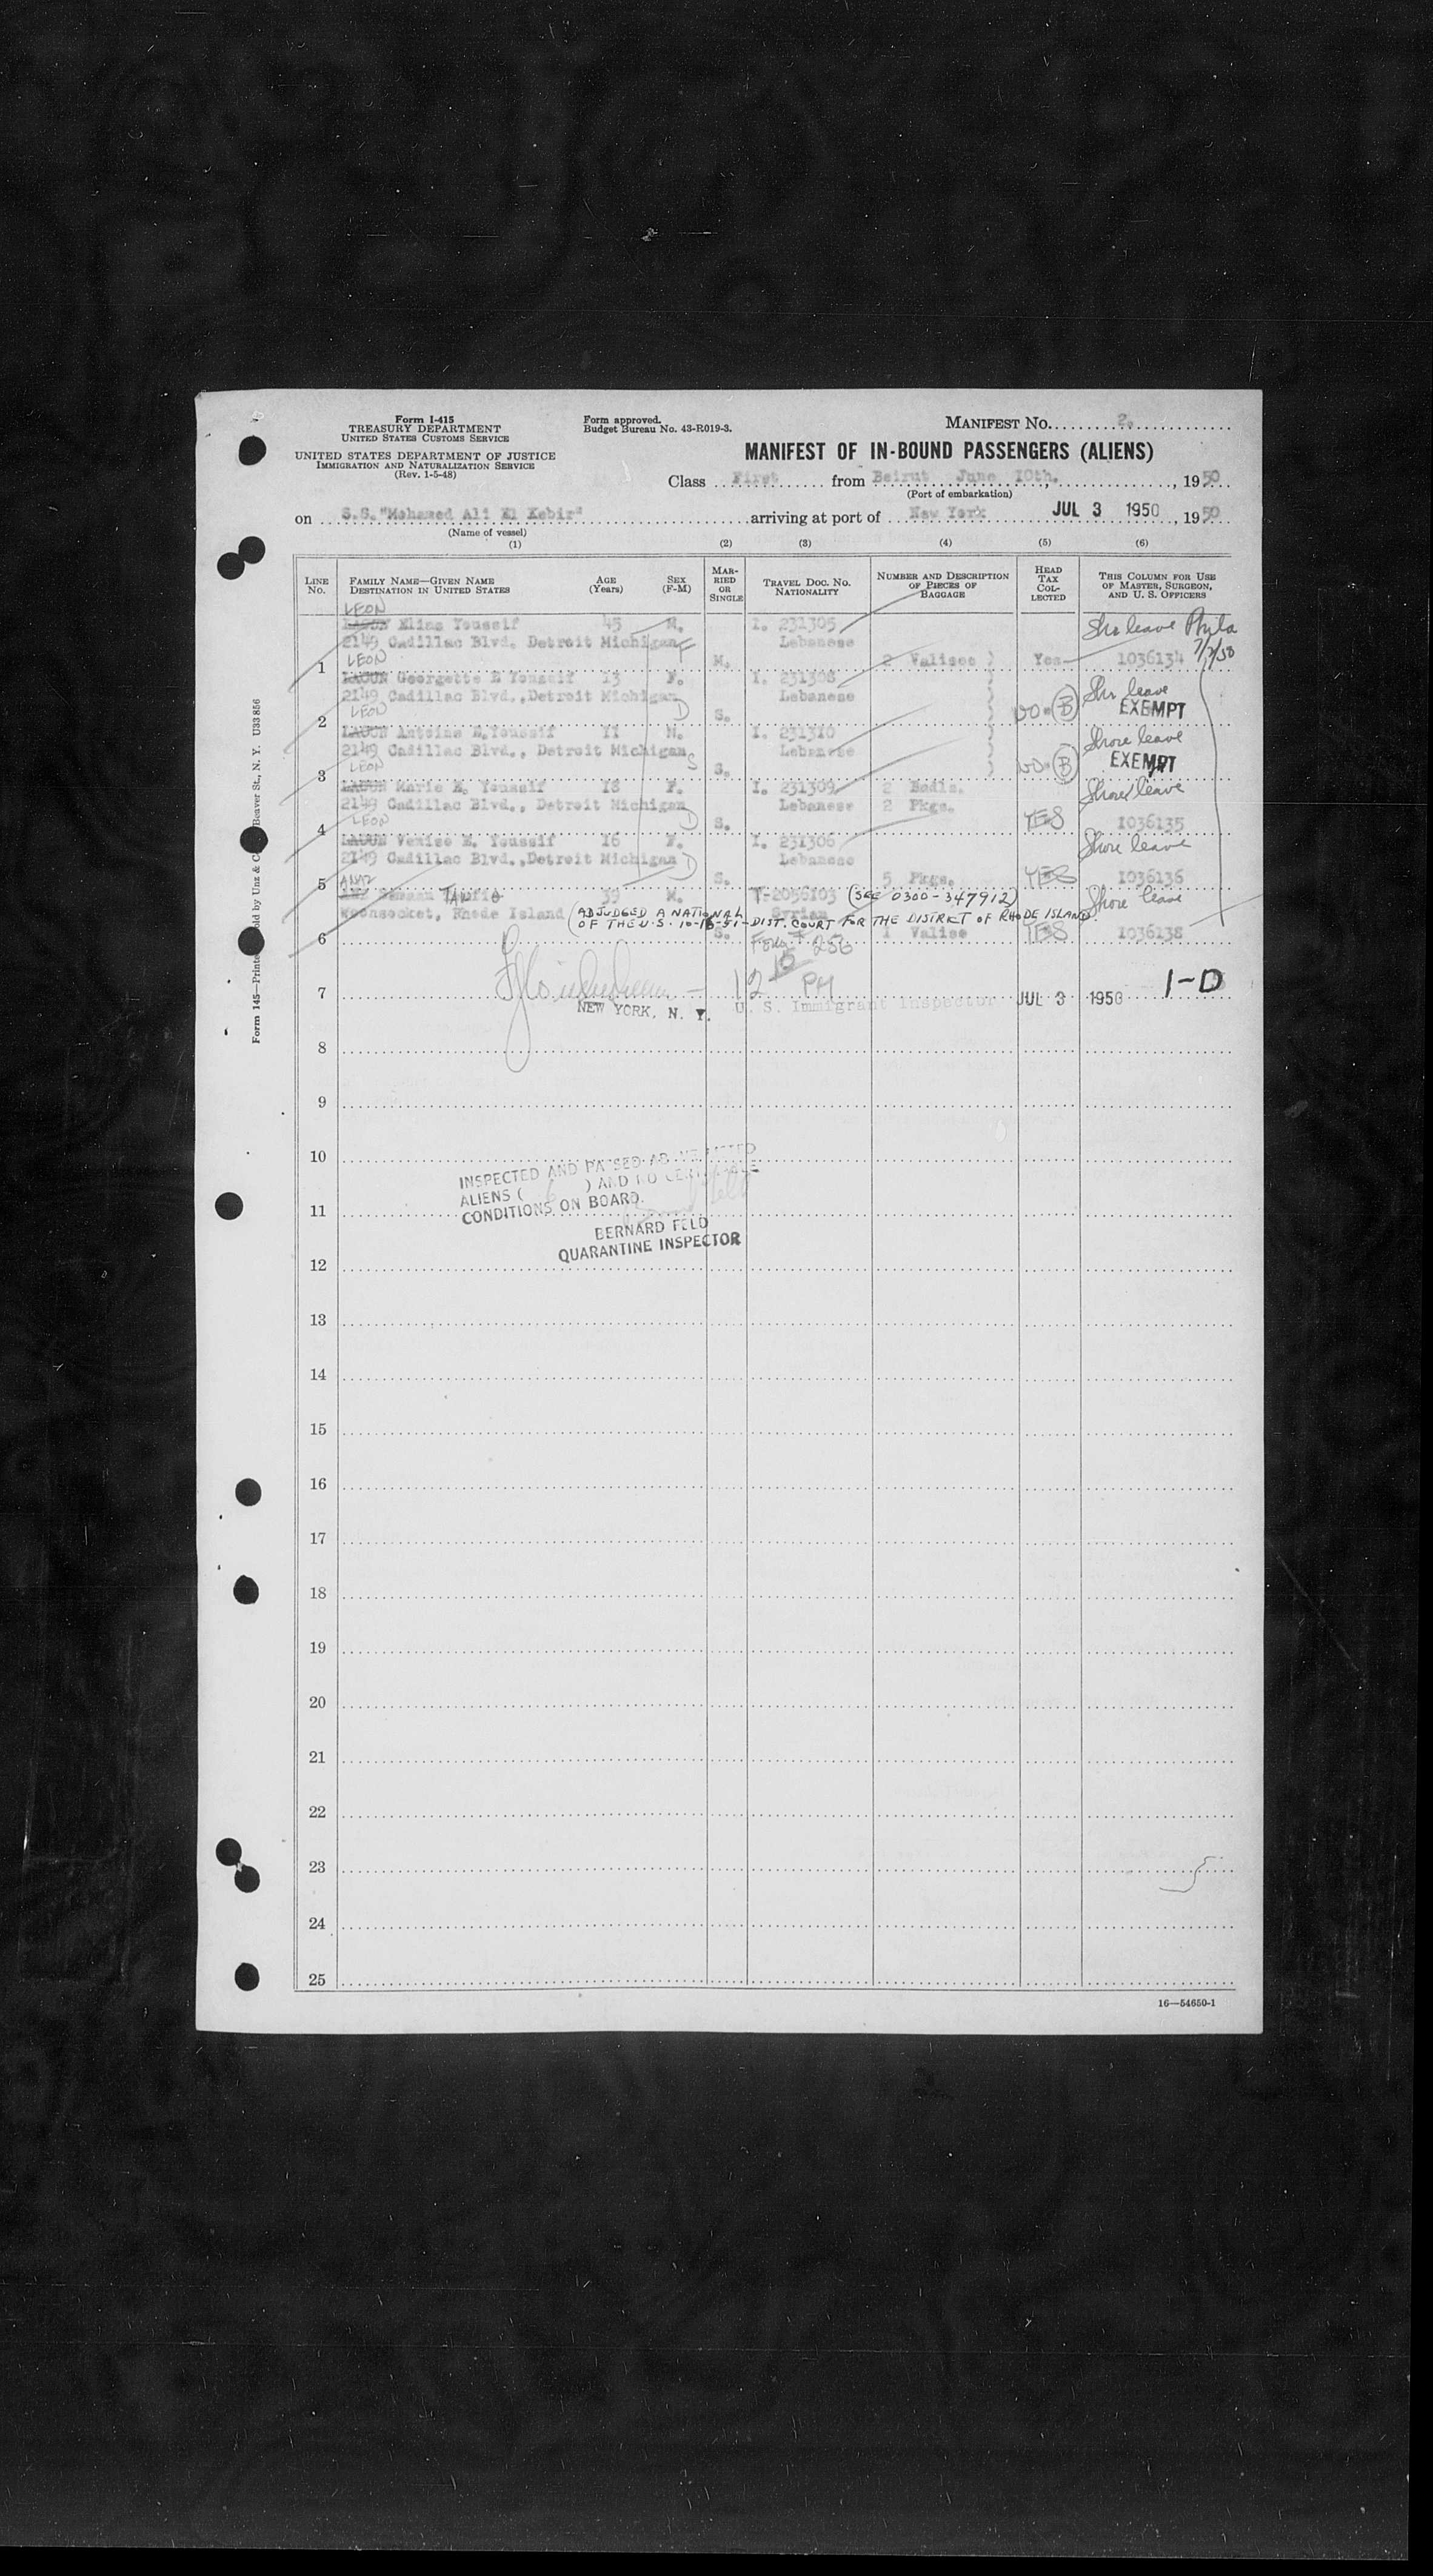 Form I-415
TREASURY DEPARTMENT
UNITED STATES CUSTOMS SERVICE
UNITED STATES DEPARTMENT OF JUSTICE
IMMIGRATION AND NATURALIZATION SERVICE
(Rev. 1-5-48)
Form approved.
Budget Bureau No. 43-R019-3.
MANIFEST No. 2.
MANIFEST OF IN-BOUND PASSENGERS (ALIENS)
Class First from Beirut June 10th. , 1950
(Port of embarkation)
on S.S."Mohamed Ali El Kebir" arriving at port of New York JUL 3 1950 , 1950
(Name of vessel)
(1) (2) (3) (4) (5) (6)
LINE No. FAMILY NAME—GIVEN NAME DESTINATION IN UNITED STATES AGE (Years) SEX (F-M) MARRIED OR SINGLE TRAVEL DOC. NO. NATIONALITY NUMBER AND DESCRIPTION OF PIECES OF BAGGAGE HEAD TAX COLLECTED THIS COLUMN FOR USE OF MASTER, SURGEON, AND U. S. OFFICERS
LEON
Elias Youssif 45 M. I. 231305 Sho leave Phila
2149 Cadillac Blvd. Detroit Michigan F Lebanese
1 LEON M. 2 Valises ) Yes 1036134
Georgette E Youssif 13 F. I. 231308 )
2149 Cadillac Blvd.,Detroit Michigan Lebanese ) Shr leave
2 LEON D S. ) B EXEMPT
Antoine E.Youssif 11 M. I. 231310 ) Shore leave
2149 Cadillac Blvd., Detroit Michigan S Lebanese )
3 LEON S. ) B EXEMPT
Marie E. Youssif 18 F. I. 231309 2 Bedls. Shore leave
2149 Cadillac Blvd., Detroit Michigan Lebanese 2 Pkgs.
4 LEON D S. YES 1036135
Venise E. Youssif 16 F. I. 231306 Shore leave
2149 Cadillac Blvd.,Detroit Michigan D Lebanese
5 S. 5 Pkgs. YES 1036136
39 M. T-2056103 (SEE 0300-347912) Shore leave
Woonsocket, Rhode Island (ADJUDGED A NATIONAL Syrian
OF THE U.S. 10-15-51-DIST. COURT FOR THE DISTRICT OF RHODE ISLAND.
6 S. Form # 256 1 Valise YES 1036138
7 12 15 PM 1-D
NEW YORK, N. Y. U. S. Immigrant Inspector JUL 3 1950
8
9
10
INSPECTED AND PASSED
ALIENS ( 6 ) AND NO
CONDITIONS ON BOARD.
11
BERNARD FELD
QUARANTINE INSPECTOR
12
13
14
15
16
17
18
19
20
21
22
23
24
25
16—54650-1
Form 145—Printed Sold by Unz & Co Beaver St., N. Y. U33856